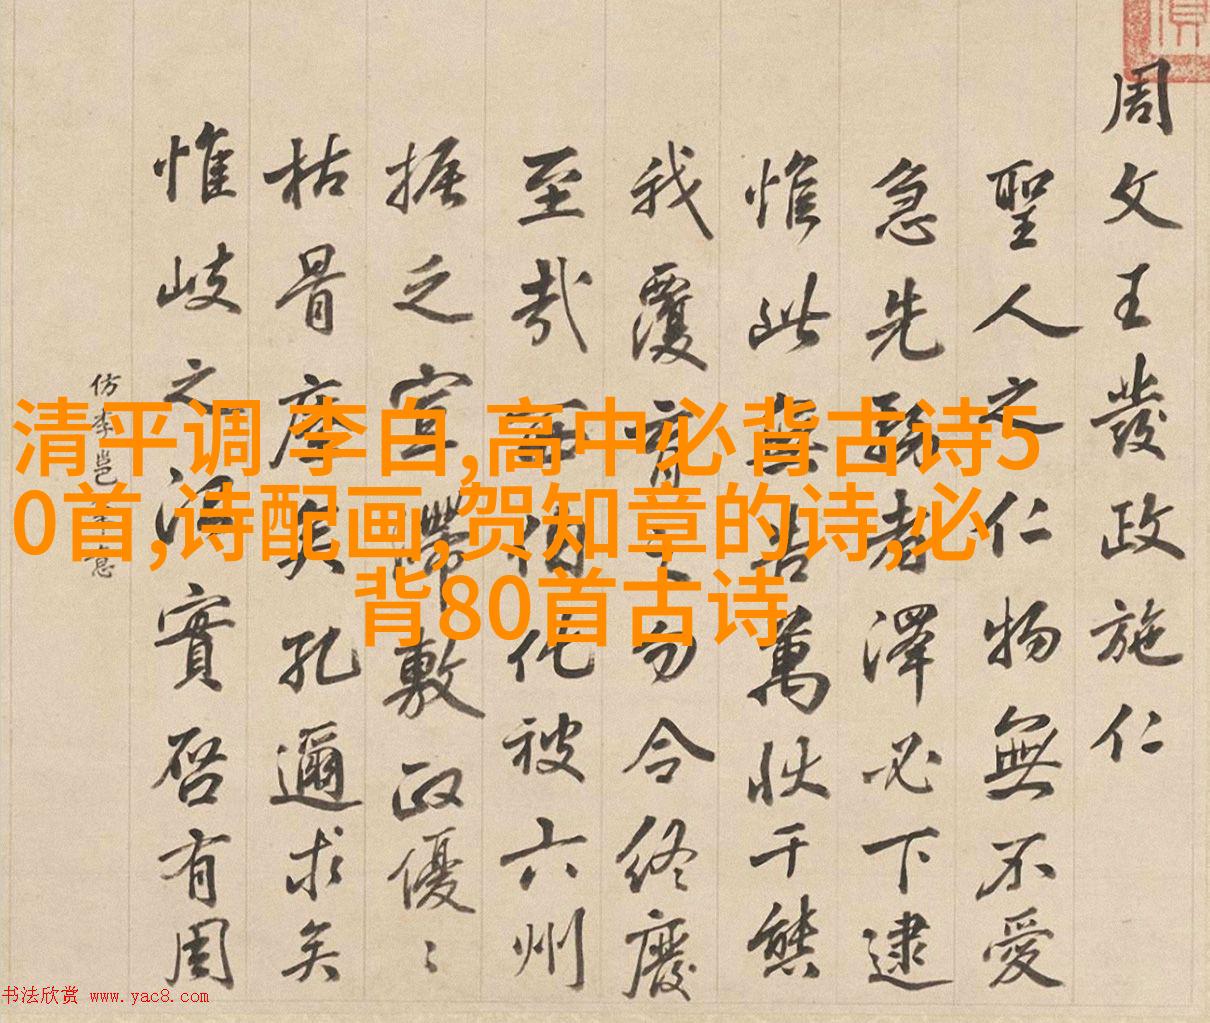 周文王發政施仁
聖人之仁物無不愛
急先者澤必下逮
惟此無告萬狀千態
我覆育之勿令終廢
至哉西伯化被六州
振之宣敷政優〻
枯骨矣孔邇求矣
惟岐之實啓有周
仿李邕
清平调 李白,高中必背古诗5
0首,诗配画,贺知章的诗,必
背80首古诗
书法欣赏 www.yac8.com